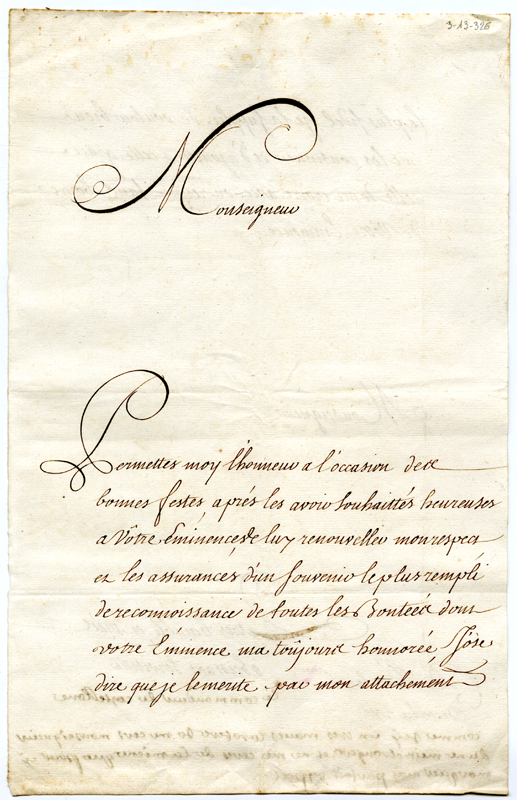 3-13-326
Monseigneur
Permettes moy l'honneur a l'occasion de ce
bonnes festes, aprés les avoir souhaittés heureuses
a Vôtre Éminence, de luy renouveller mon respect
et les assurances d'un souvenir le plus rempli
de reconnoissance de toutes les Bontéés dont
votre Éminence ma toujours honoréé, J'ôse
dire que je le merite par mon attachement